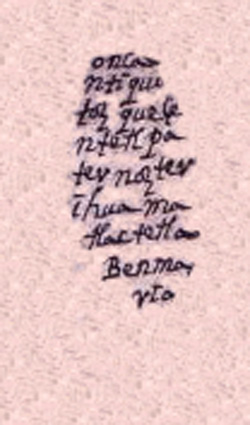 oncan
ntiqui
toz quele
ntetl pa
ter nozter
ihuan ma
tlactetlao
Benma
rta